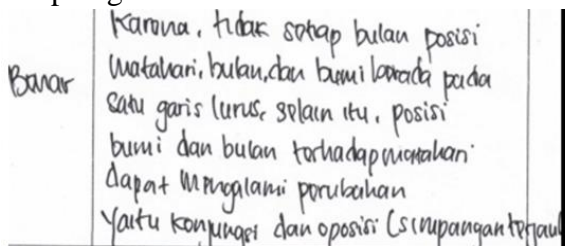 Karena, tidak setiap bulan posisi
Benar
matahari, bulan, dan bumi berada pada
satu garis lurus, selain itu, posisi
bumi dan bulan terhadap matahari
dapat mengalami perubahan
yaitu konjungsi dan oposisi (simpangan terjauh